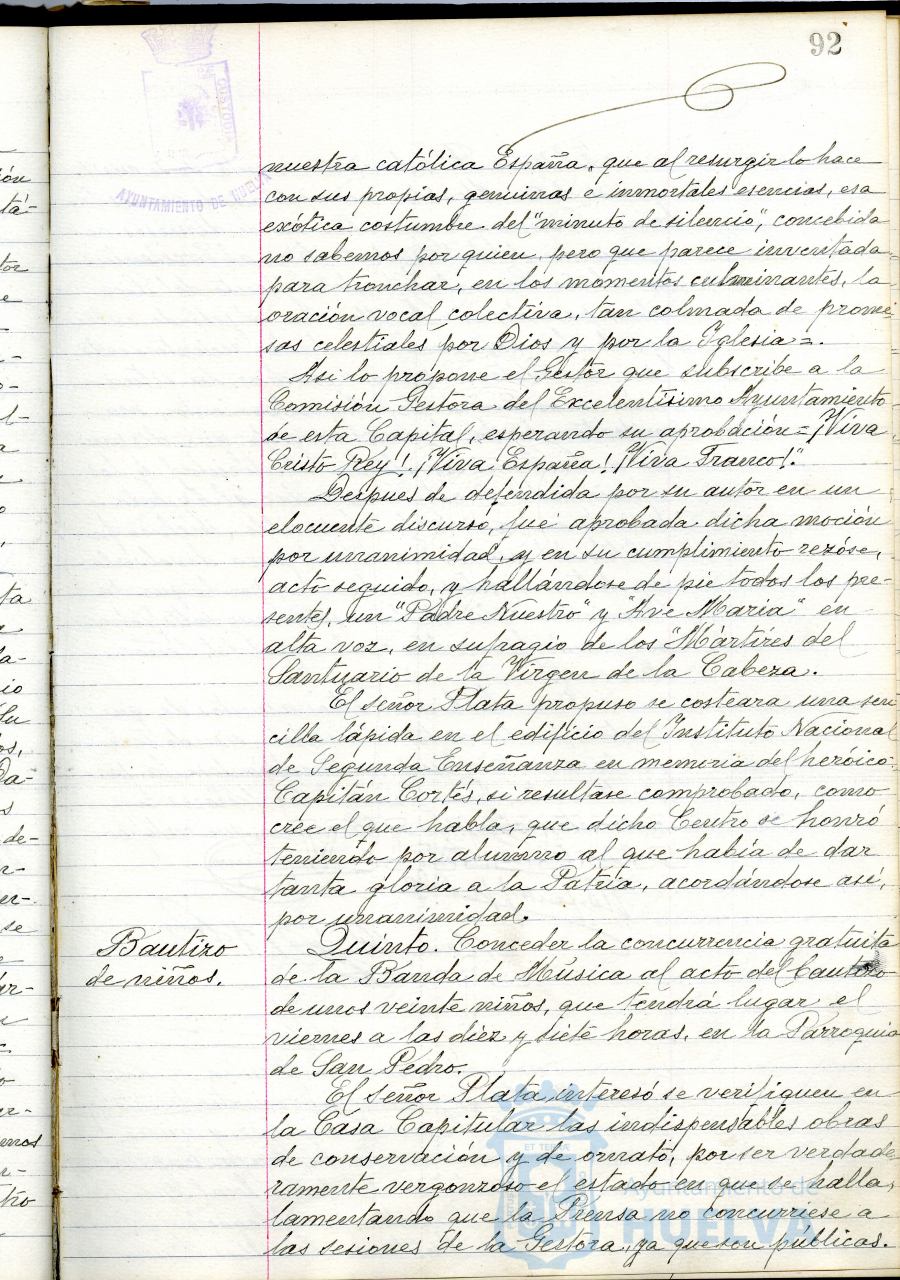 92
AYUNTAMIENTO DE HUELVA
nuestra católica España, que al resurgir lo hace
con sus propias, genuinas e inmortales esencias, esa
exótica costumbre del "minuto de silencio", concebida
no sabemos por quien, pero que parece inventada
para tronchar, en los momentos culminantes, la
oración vocal colectiva, tan colmada de prome-
sas celestiales por Dios y por la Iglesia=.
Asi lo propone el Gestor que subscribe a la
Comisión Gestora del Excelentísimo Ayuntamiento
de esta Capital, esperando su aprobación=¡Viva
Cristo Rey! ¡Viva España! ¡Viva Franco!".
Despues de defendida por su autor en un
elocuente discurso, fué aprobada dicha moción
por unanimidad, y en su cumplimiento rezóse,
acto seguido, y hallándose de pie todos los pre-
sentes, un "Padre Nuestro" y "Ave Maria" en
alta voz, en sufragio de los "Mártires del
Santuario de la Virgen de la Cabeza.
El señor Plata propuso se costeara una sen
cilla lápida en el edificio del Instituto Nacional
de Segunda Enseñanza en memoria del heróico
Capitán Cortés, si resultase comprobado, como
cree el que habla, que dicho Centro se honró
teniendo por alumno al que había de dar
tanta gloria a la Patria, acordándose así,
por unanimidad.
Bautizo
de niños.
Quinto. Conceder la concurrencia gratuita
de la Banda de Música al acto del bautizo
de unos veinte niños, que tendrá lugar el
viernes a las diez y siete horas, en la Parroquia
de San Pedro.
El señor Plata interesó se verifiquen en
la Casa Capitular las indispensables obras
de conservación y de ornato, por ser verdade
ramente vergonzoso el estado en que se halla,
lamentando que la Prensa no concurriese a
las sesiones de la Gestora, ya que son públicas.
Ayuntamiento de
HUELVA